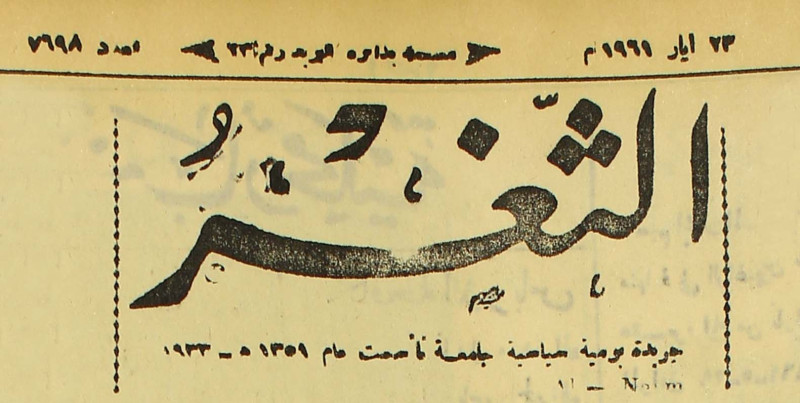 ٢٣ ايار ١٩٦١ م مسجلة بدائرة البريد رقم ٢٣ العدد ٧٦٩٨
الثَّغْرُ
جريدة يومية سياسية جامعة تأسست عام ١٣٥١ هـ ــ ١٩٣٣